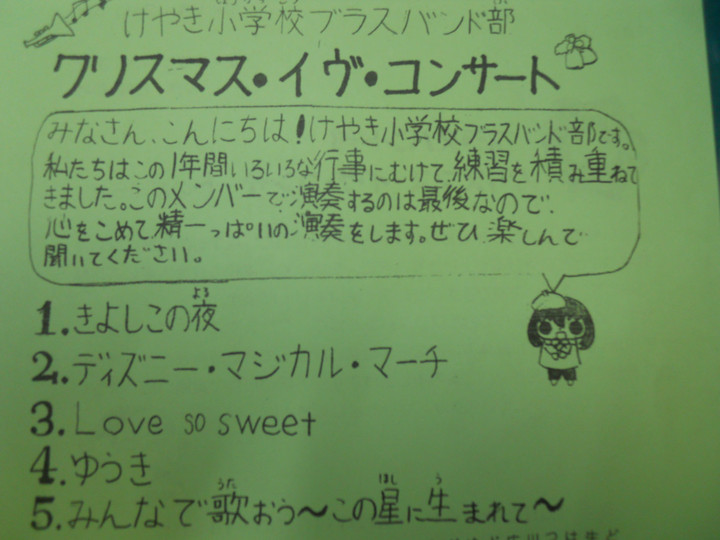 けやき小学校ブラスバンド部
クリスマス・イヴ・コンサート
みなさん、こんにちは!けやき小学校ブラスバンド部です。
私たちはこの1年間いろいろな行事にむけて、練習を積み重ねて
きました。このメンバーで演奏するのは最後なので、
心をこめて精一っぱいの演奏をします。ぜひ楽しんで
聞いてください。
よる
1.きよしこの夜
2.ディズニー・マジカル・マーチ
3.Love so sweet
4.ゆうき
うた ほし う
5.みんなで歌おう〜この星に生まれて〜